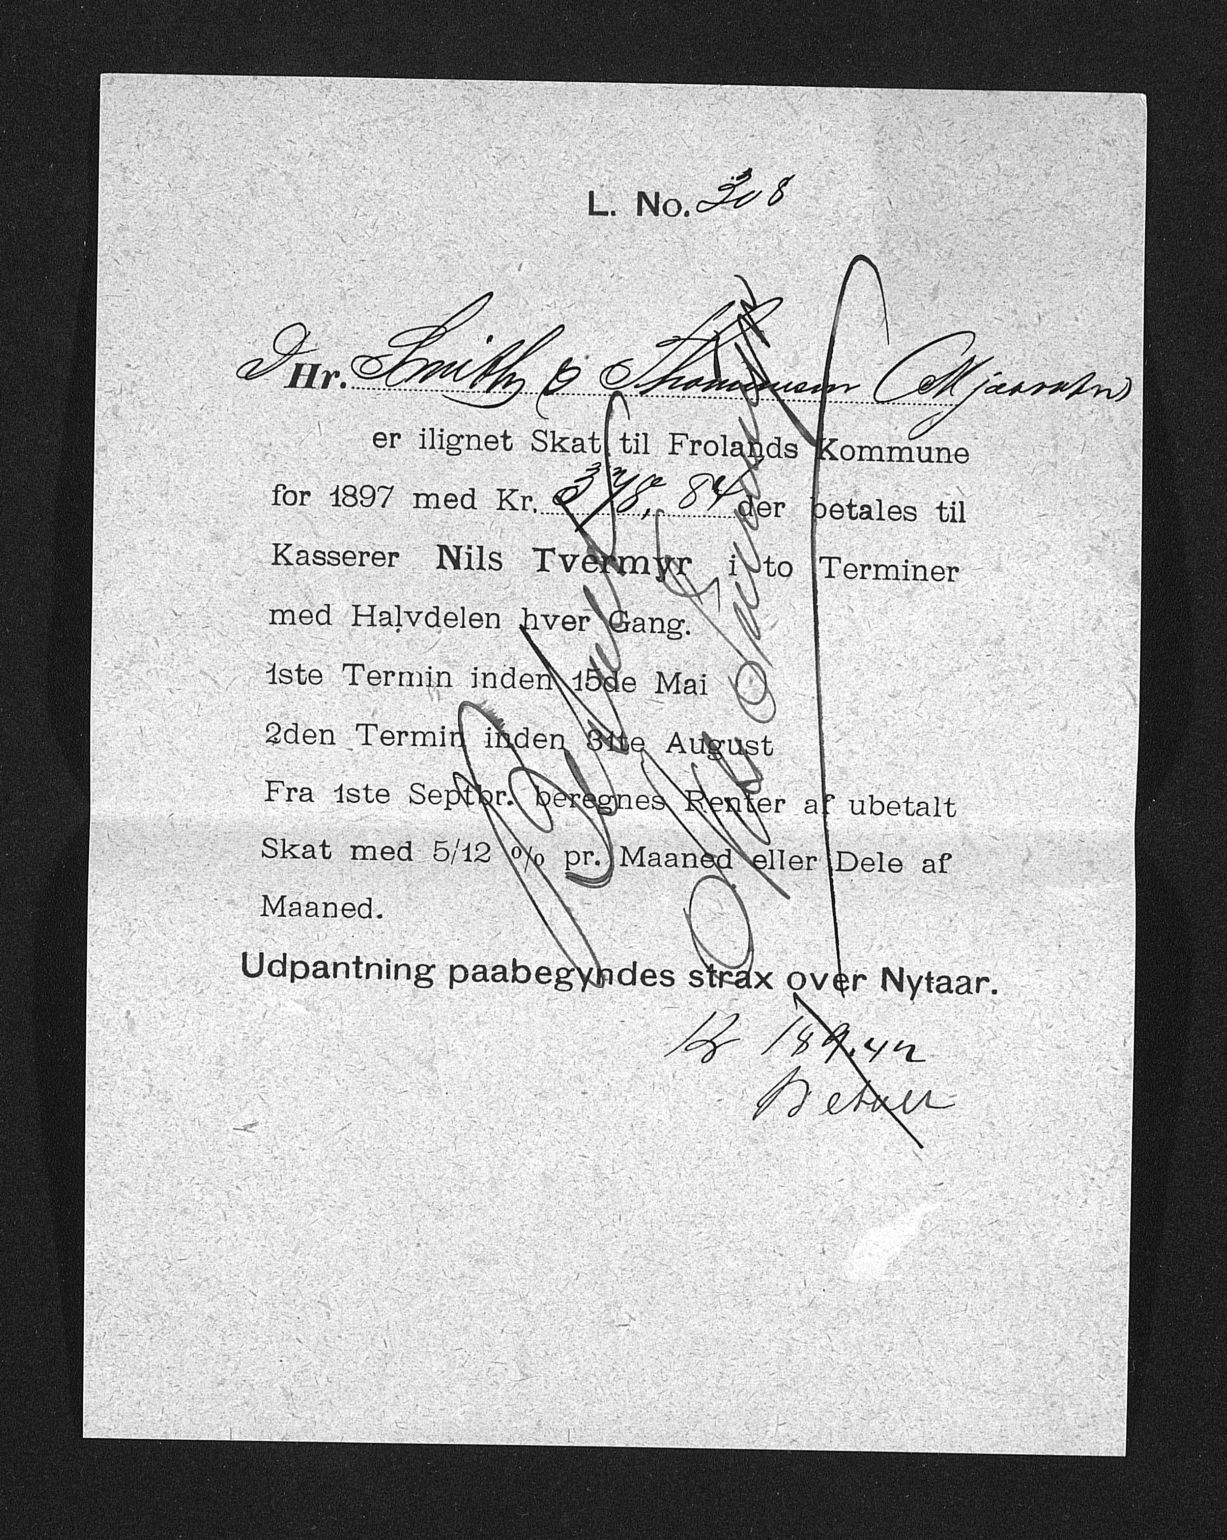 L. No. 308
D Hr. Smith & Thommesen (Mjaavatn)
er ilignet Skat til Frolands Kommune
for 1897 med Kr. 378,84 der betales til
Kasserer Nils Tvermyr i to Terminer
med Halvdelen hver Gang.
1ste Termin inden 15de Mai
2den Termin inden 31te August
Fra 1ste Septbr. beregnes Renter af ubetalt
Skat med 5/12 % pr. Maaned eller Dele af
Maaned.
Udpantning paabegyndes strax over Nytaar.
Kr 189,42
Betalt
Betalt